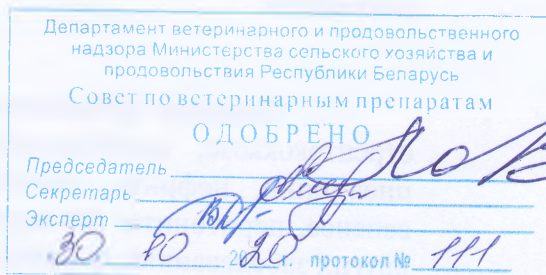 Департамент ветеринарного и продовольственного
надзора Министерства сельского хозяйства и
продовольствия Республики Беларусь
Совет по ветеринарным препаратам
ОДОБРЕНО
Председатель
Секретарь
Эксперт
30 10 2020 г. протокол № 111